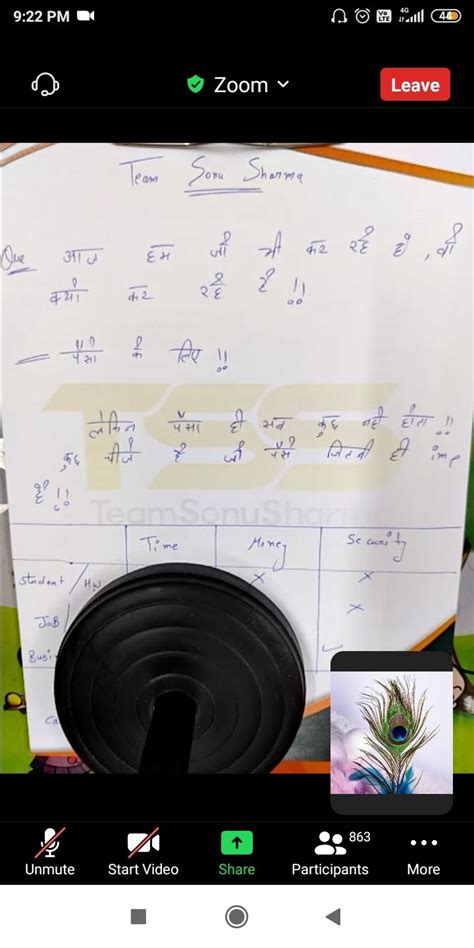 9:22 PM
4G
Vo LTE
44
Zoom
Leave
Team Sonu Sharma
Que आज हम जो भी कर रहे हैं, वो
क्यों कर रहे हैं !!
पैसों के लिए !!
लेकिन पैसा ही सब कुछ नही होता !!
कुछ चीजे है जो पैसे जितनी ही imp
है !!
TSS
TeamSonuSharm
Time Money Security
Student / H.W x x
JOB / x
Busi ✓
Ca
Unmute
Start Video
Share
863
Participants
More